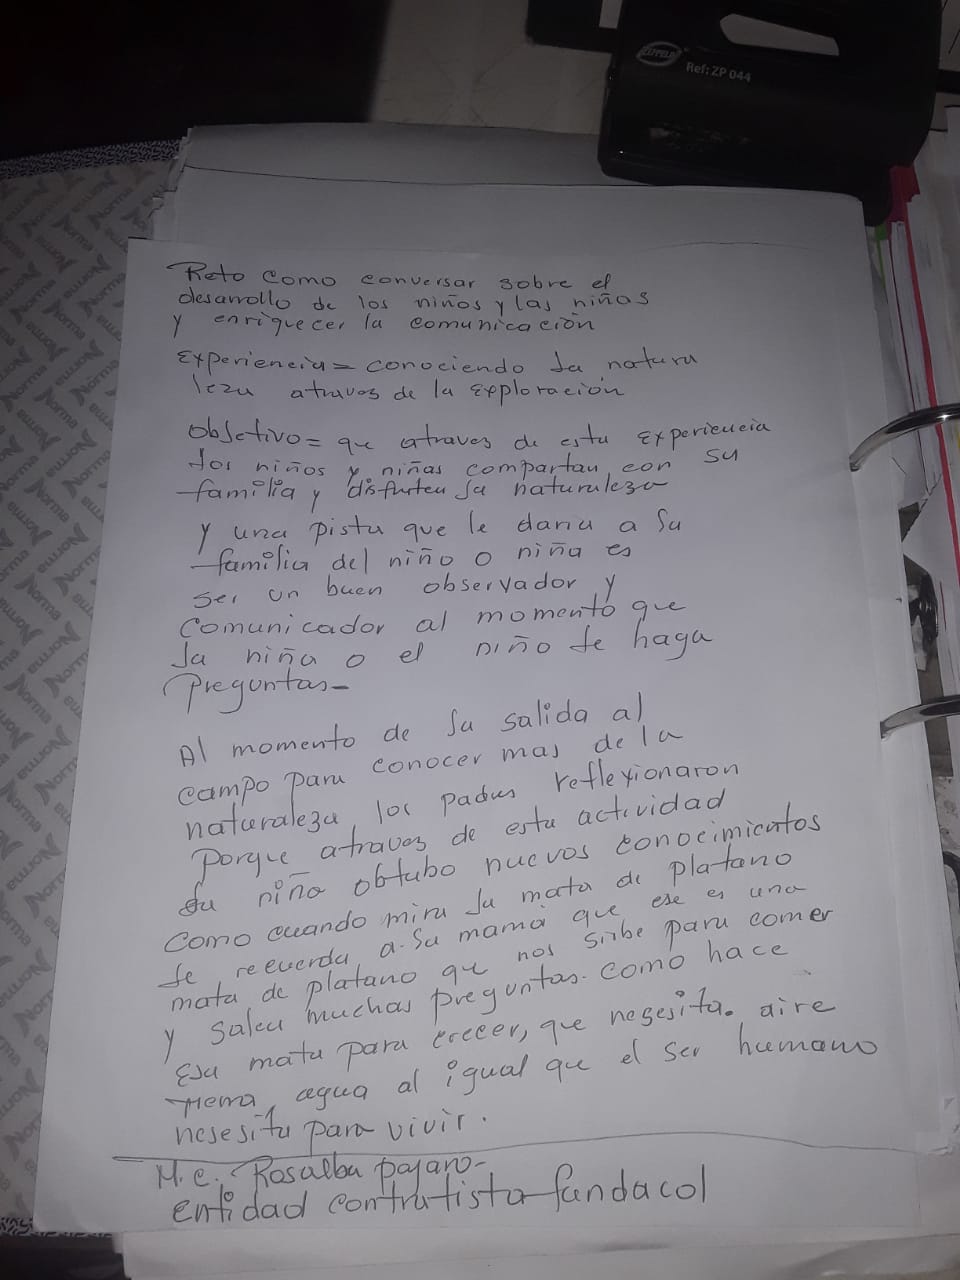 ZEPPELIN
Ref: ZP 044
Norma
Reto como conversar sobre el
desarrollo de los niños y las niñas
y enriquecer la comunicación
Experiencia= conociendo la natura
leza atravos de la exploración
Objetivo= que atraves de esta experiencia
los niños y niñas compartan con su
familia y disfruten la naturaleza
y una pista que le daria a su
familia del niño o niña es
ser un buen observador y
comunicador al momento que
la niña o el niño le haga
preguntas-
Al momento de su salida al
campo para conocer mas de la
naturaleza los padres reflexionaron
porque atraves de esta actividad
su niño obtubo nuevos conocimientos
como cuando mira la mata de platano
le recuerda a su mamá que ese es una
mata de platano que nos sirbe para comer
y salen muchas preguntas. como hace
Esa mata para crecer, que nesesita. aire
agua al igual que el ser humano
nesesita para vivir.
M.C. Rosalba pajaro-
entidad contratista fundacol